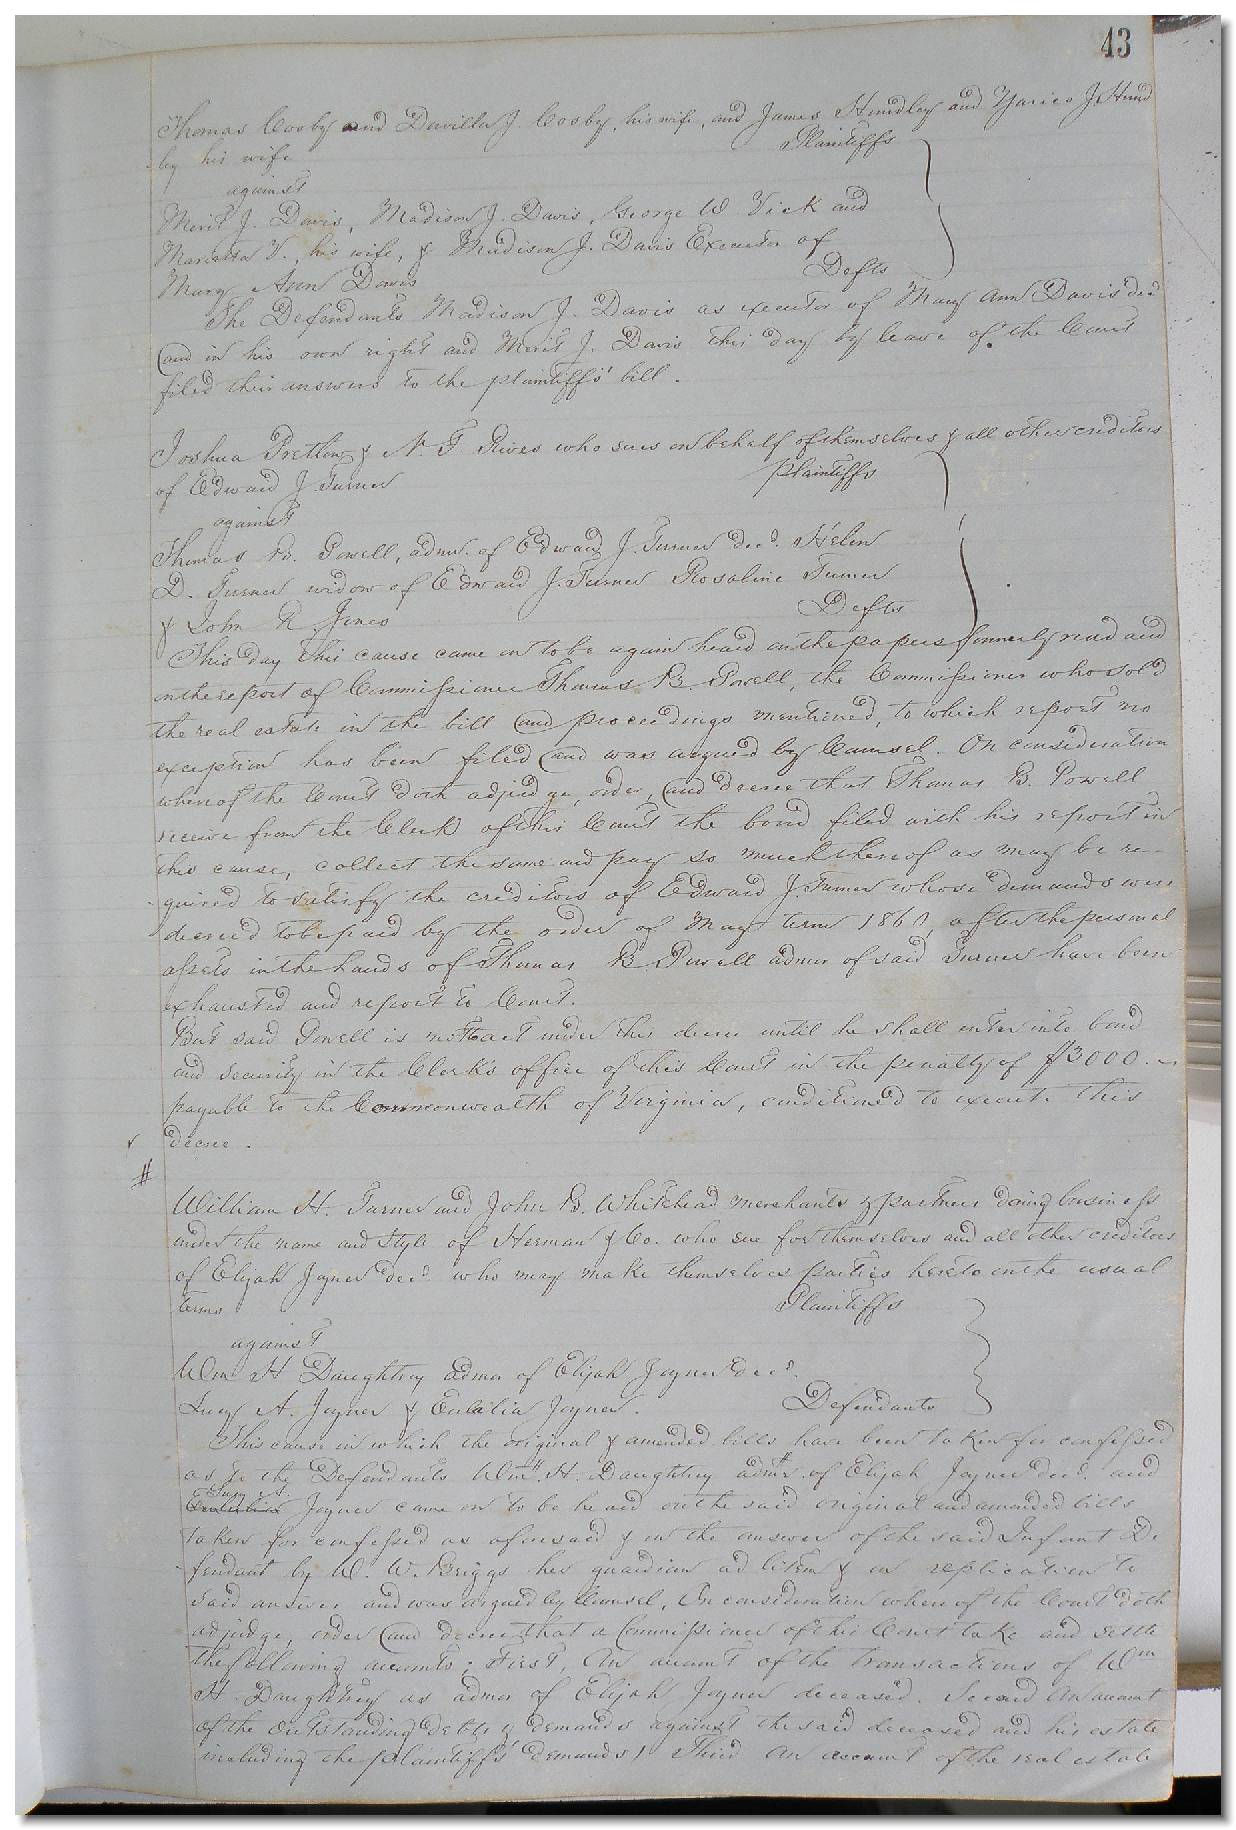 43
Thomas Cosby and Davilla J. Cosby, his wife, and James Hundley and Yarico J. Hund
ley his wife Plaintiffs
against
Merit J. Davis, Madison J. Davis, George W Vick and
Marietta V., his wife, & Madison J. Davis Executor of
Mary Ann Davis Defts
The Defendants Madison J. Davis as executor of Mary Ann Davis decd
and in his own right and Merit J. Davis this day by leave of the Court
filed their answers to the plaintiffs' bill.
Joshua Pretlow & N. F. Rives who sues on behalf of themselves & all other creditors
of Edward J Turner Plaintiffs
against
Thomas B. Powell, admr. of Edward J. Turner decd. Helen
D. Turner widow of Edward J. Turner Rosaline Turner
& John R Jones Defts
This day this cause came on to be again heard on the papers formerly read and
on the report of Commissioner Thomas B. Powell, the Commissioner who sold
the real estate in the bill and proceedings mentioned, to which report no
exception has been filed and was argued by Counsel. On consideration
whereof the Court doth adjudge, order, and decree that Thomas B. Powell
receive from the Clerk of this Court the bond filed with his report in
this cause, collect the same and pay so much thereof as may be re-
quired to satisfy the creditors of Edward J. Turner whose demands were
decreed to be paid by the order of May term 1860, after the personal
assets in the hands of Thomas B Powell admr of said Turner have been
exhausted and report to Court.
But said Powell is not to act under this decree until he shall enter into bond
and security in the Clerk's office of this Court in the penalty of $3000.
payable to the Commonwealth of Virginia, conditioned to execute this
decree.
#
William H. Turner and John B. Whitehead merchants & partners doing business
under the name and style of Herman & Co. who sue for themselves and all other creditors
of Elijah Joyner decd. who may make themselves parties hereto on the usual
terms Plaintiffs
against
Wm H Daughtry admr of Elijah Joyner decd.
Lucy A. Joyner & Eulalia Joyner. Defendants
This cause in which the original & amended bills have been taken for confessed
as to the Defendants Wm. H. Daughtry admr. of Elijah Joyner decd. and
Lucy A.
Joyner came on to be heard on the said original and amended bills
taken for confessed as aforesaid & on the answer of the said Infant De
fendant by W. W. Briggs her guardian ad litem & on replication to
said answer and was argued by Counsel, On consideration whereof the Court doth
adjudge, order and decree that a Commissioner of this Court take and settle
the following accounts; First, An account of the transactions of Wm
H. Daughtrey as admr of Elijah Joyner deceased. Second An account
of the outstanding debts & demands against the said deceased and his estate
including the plaintiffs' demands, Third An account of the real estate